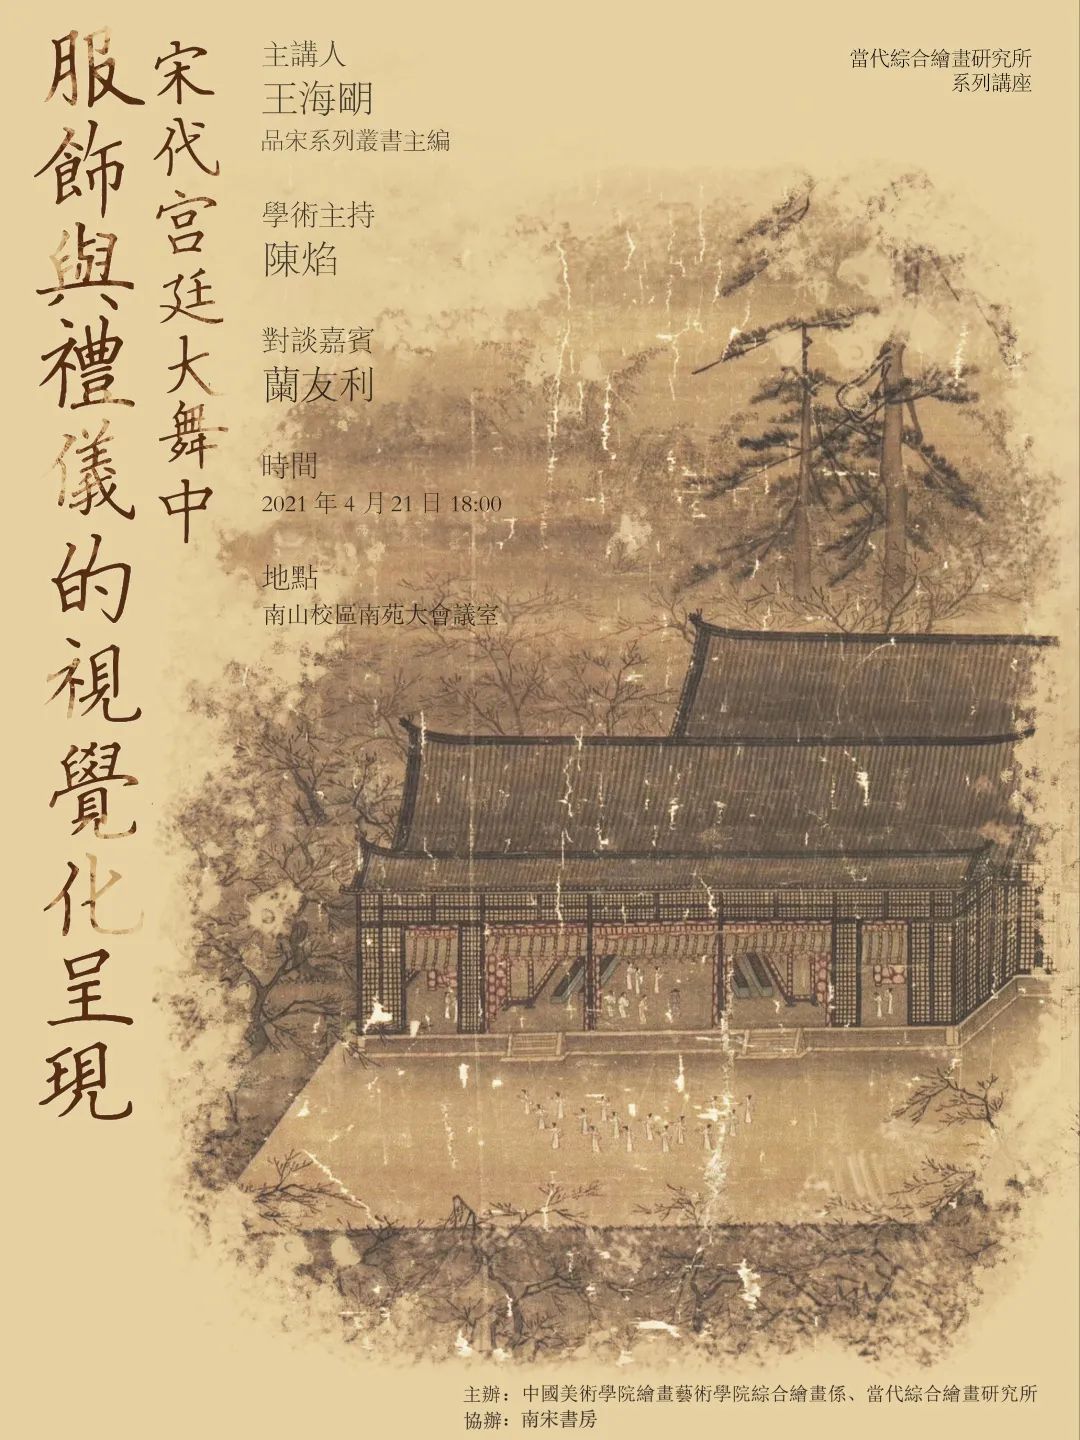 宋代宫廷大舞中
服飾與禮儀的視覺化呈現
主講人
王海明
品宋系列叢書主編
學術主持
陳焰
對談嘉賓
蘭友利
時間
2021 年 4 月 21 日 18:00
地點
南山校區南苑大會議室
當代綜合繪畫研究所
系列講座
主辦：中國美術學院繪畫藝術學院綜合繪畫係、當代綜合繪畫研究所
協辦：南宋書房